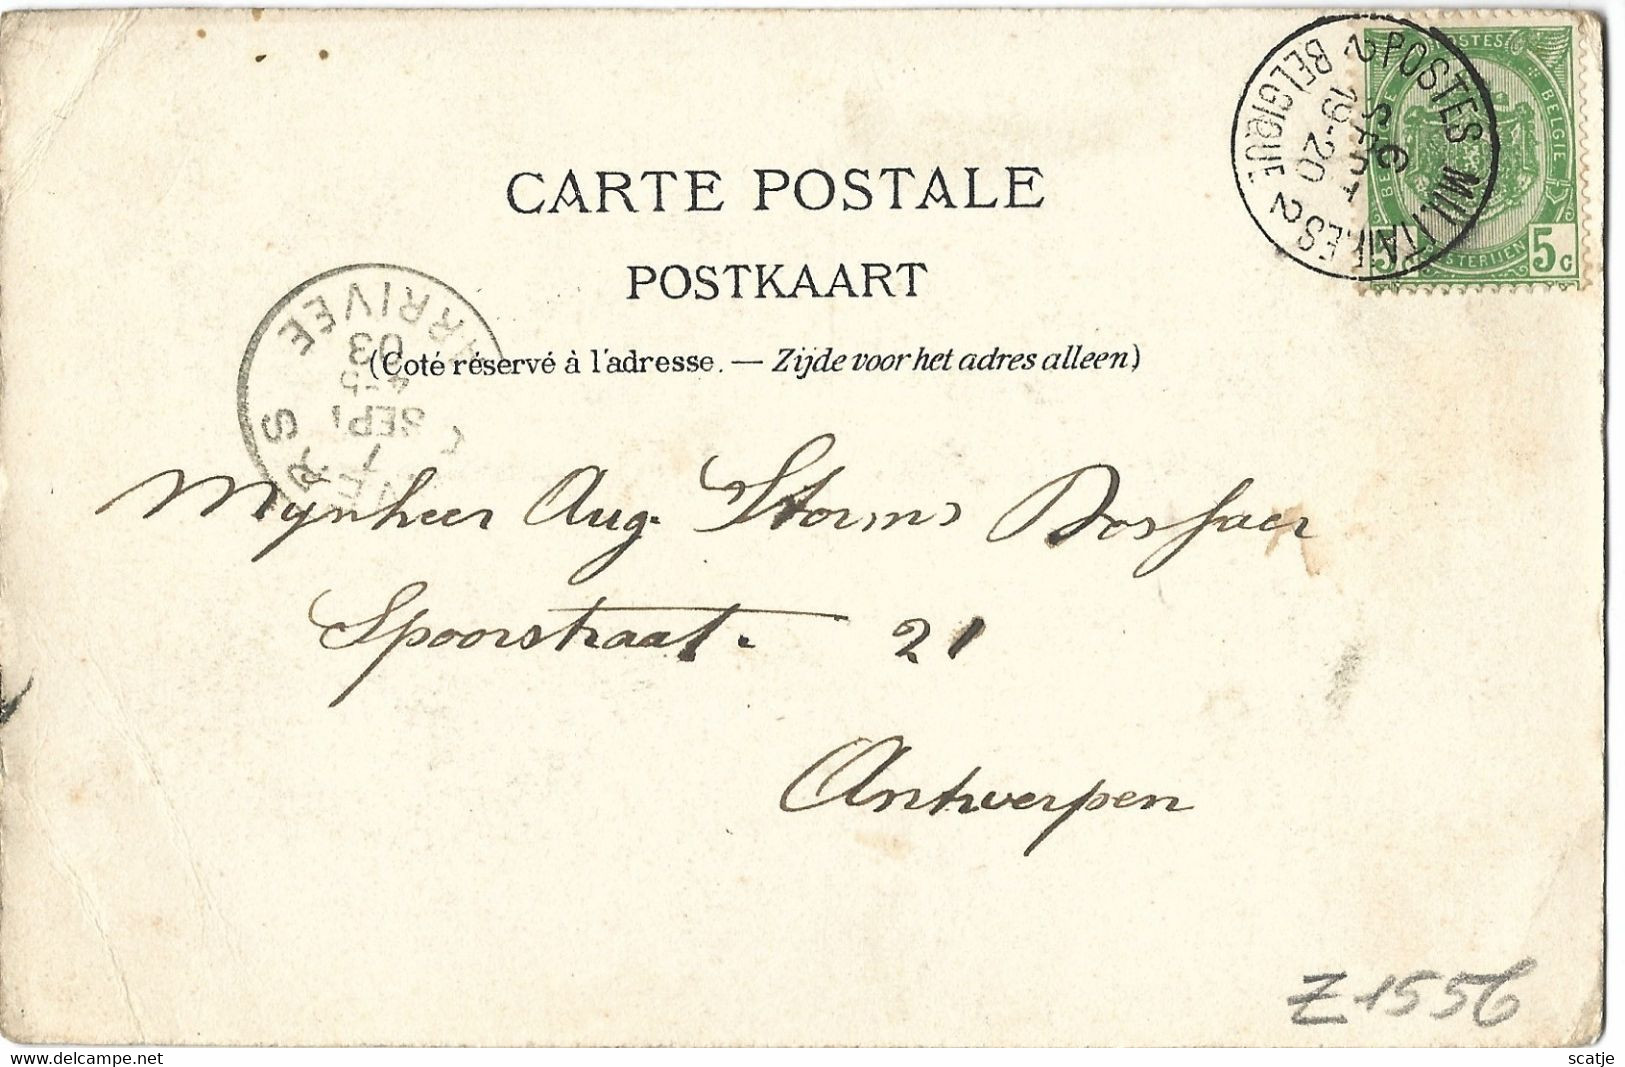 POSTES
BELGIQUE BELGIE
POSTERIJEN
5 5c
POSTES MILITAIRES 2
BELGIQUE 2
6
SEPT
19-20
CARTE POSTALE
POSTKAART
(Coté réservé à l'adresse. — Zijde voor het adres alleen)
ARRIVEE
03
SEPT
7
Mynheer Aug. Storms Bosschaer
Spoorstraat. 21
Antwerpen
Z1556
scatje